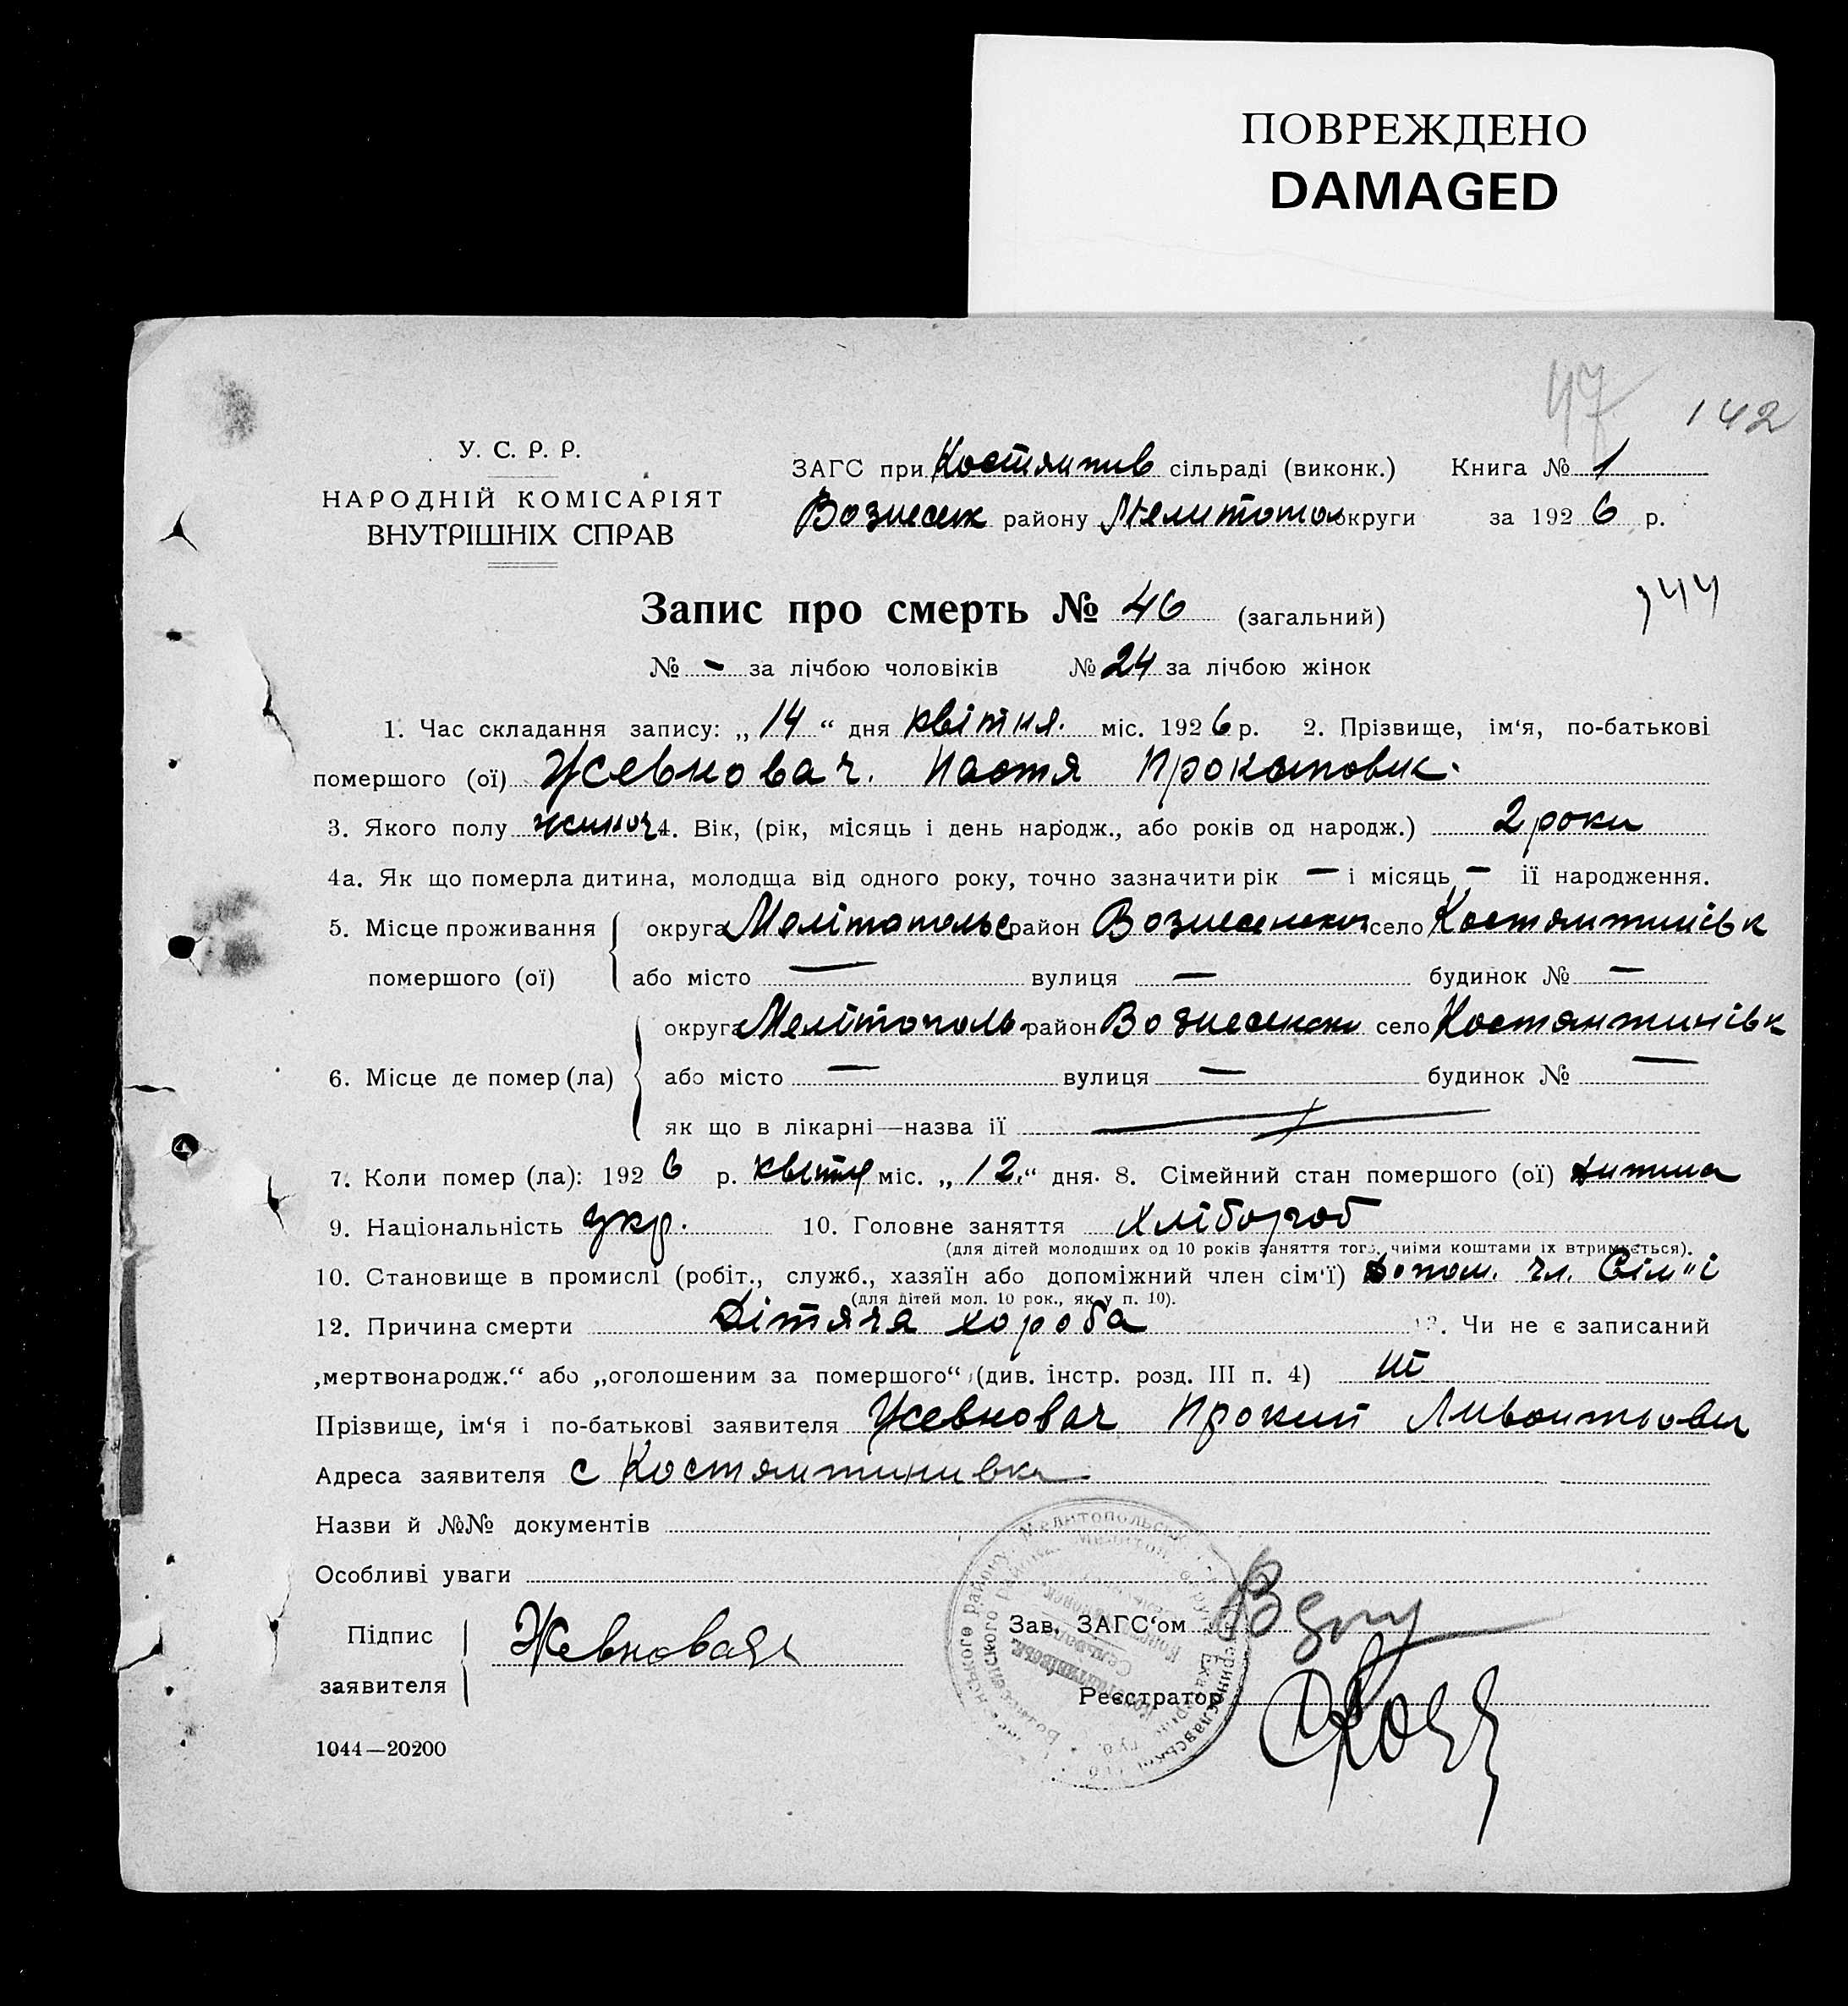 ПОВРЕЖДЕНО
DAMAGED
47 142
У. С. Р. Р.
НАРОДНІЙ КОМІСАРІЯТ
ВНУТРІШНІХ СПРАВ
ЗАГС при Костянтив сільраді (виконк.) Книга № 1
Вознесенк району Мелитопол округи за 1926 р.
Запис про смерть № 46 (загальний)
144
№ - за лічбою чоловіків № 24 за лічбою жінок
1. Час складання запису: „14“ дня квітня. міс. 1926 р. 2. Прізвище, ім‘я, по-батькові
помершого (ої) Жевновач. Настя Прокоповн.
3. Якого полу жиноч 4. Вік, (рік, місяць і день народж., або років од народж.) 2 роки
4а. Як що померла дитина, молодща від одного року, точно зазначити рік — і місяць — її народження.
5. Місце проживання округа Мелітопольс район Вознесенськ село Костянтиніськ
помершого (ої) або місто — вулиця — будинок № —
округа Мелітополь район Вознесенськ село Костянтиніськ
6. Місце де помер (ла) або місто — вулиця — будинок № —
як що в лікарні—назва її
7. Коли помер (ла): 1926 р. квітня міс. „12.“ дня. 8. Сімейний стан помершого (ої) дитина
9. Національність укр. 10. Головне заняття хлібороб
(для дітей молодших од 10 років заняття того, чиїми коштами їх втримується).
10. Становище в промислі (робіт., служб., хазяїн або допоміжний член сім‘ї) Допом. чл. Сім"ї
(для дітей мол. 10 рок., як у п. 10).
12. Причина смерти Дітяча хороба 13. Чи не є записаний
„мертвонародж.“ або „оголошеним за помершого“ (див. інстр. розд. III п. 4) ні
Прізвище, ім‘я і по-батькові заявителя Жевновач Прокип
Адреса заявителя с Костянтинивка
Назви й №№ документів
Особливі уваги
Підпис
заявителя Жевновач
Зав. ЗАГС‘ом
Реєстратор
1044—20200